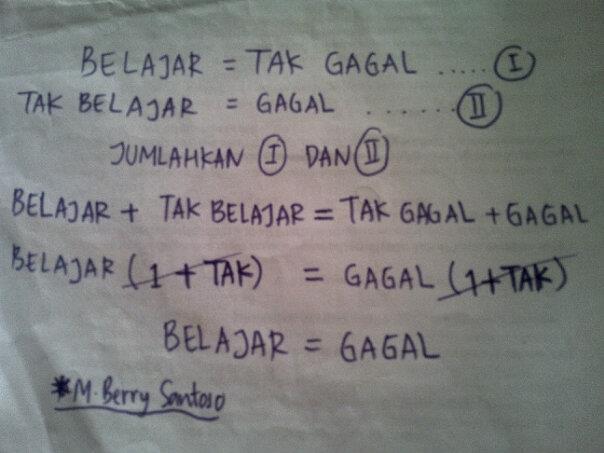 BELAJAR = TAK GAGAL ..... I
TAK BELAJAR = GAGAL ...... II
JUMLAHKAN I DAN II
BELAJAR + TAK BELAJAR = TAK GAGAL + GAGAL
BELAJAR (1 + TAK) = GAGAL (1+TAK)
BELAJAR = GAGAL
*M. Berry Santoso